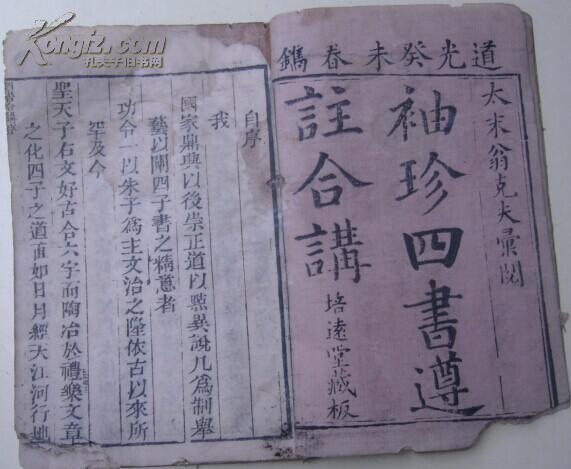 道光癸未春鐫
太末翁克夫彙閱
袖珍四書遵
註合講
培遠堂藏板
自序
我
國家鼎興以後崇正道以黜異說凡為制舉
藝以闡四子書之精意者
功令一以朱子為主文治之隆依古以來所
罕及今
聖天子右文好古合六宇而陶冶於禮樂文章
之化四子之道直如日月經天江河行地
Kongfz.com
孔夫子旧书网